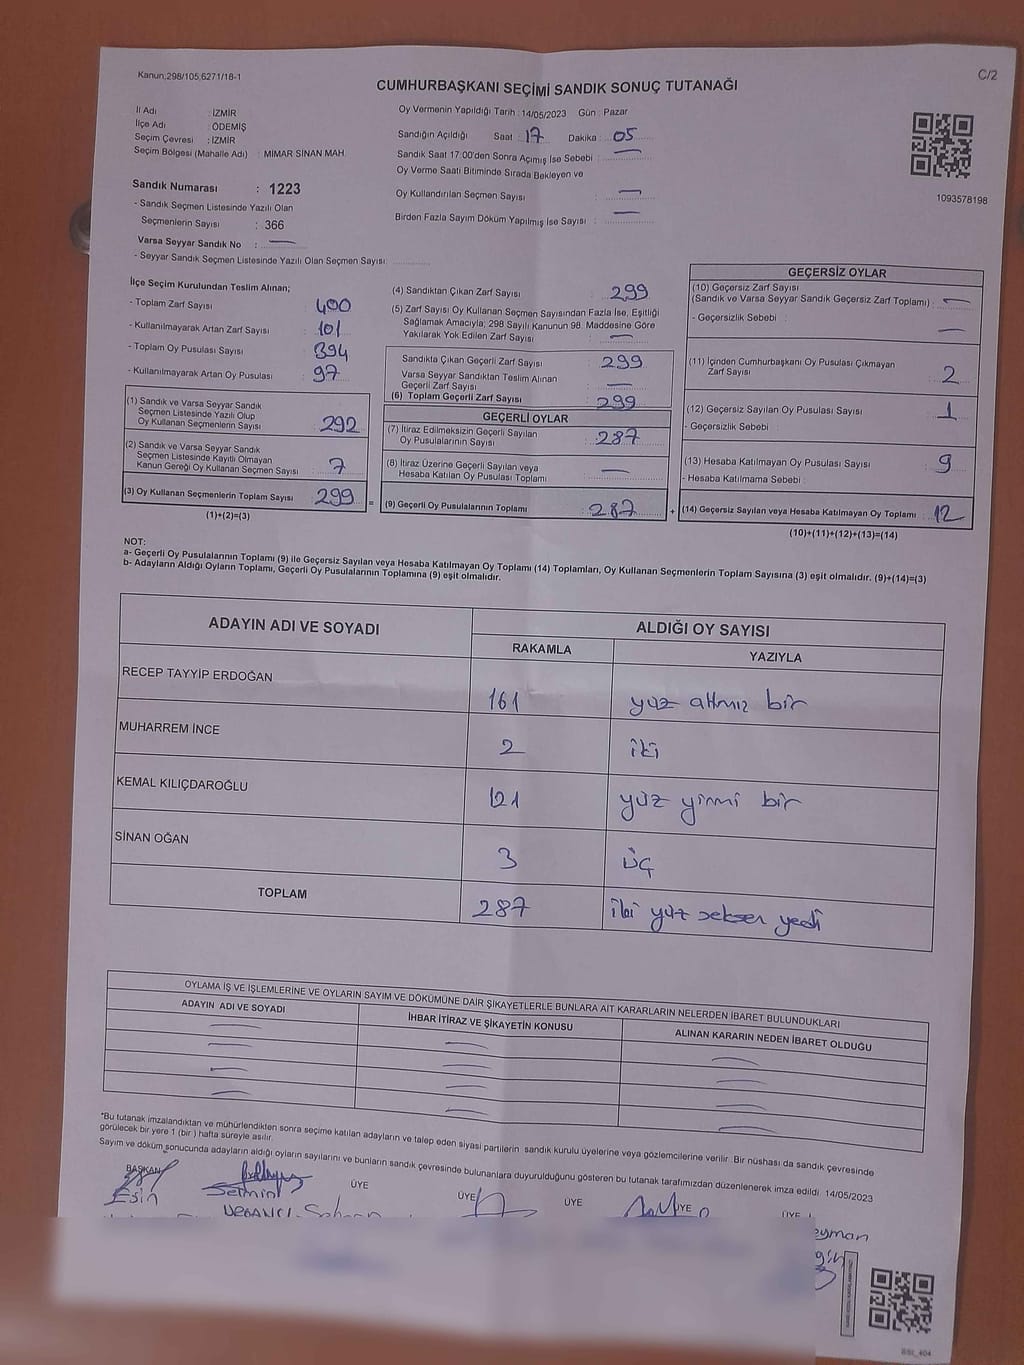 Kanun:298/105;6271/18-1
C/2
CUMHURBAŞKANI SEÇİMİ SANDIK SONUÇ TUTANAĞI
İl Adı : İZMİR
İlçe Adı : ÖDEMİŞ
Seçim Çevresi : İZMİR
Seçim Bölgesi (Mahalle Adı) : MİMAR SİNAN MAH.
Sandık Numarası : 1223
- Sandık Seçmen Listesinde Yazılı Olan
Seçmenlerin Sayısı : 366
Varsa Seyyar Sandık No : —
- Seyyar Sandık Seçmen Listesinde Yazılı Olan Seçmen Sayısı:
Oy Vermenin Yapıldığı Tarih : 14/05/2023 Gün : Pazar
Sandığın Açıldığı Saat : 17 Dakika : 05
Sandık Saat 17:00'den Sonra Açımış İse Sebebi : —
Oy Verme Saati Bitiminde Sırada Bekleyen ve
Oy Kullandırılan Seçmen Sayısı : —
Birden Fazla Sayım Döküm Yapılmış İse Sayısı : —
1093578198
İlçe Seçim Kurulundan Teslim Alınan;
- Toplam Zarf Sayısı : 400
- Kullanılmayarak Artan Zarf Sayısı : 101
- Toplam Oy Pusulası Sayısı : 394
- Kullanılmayarak Artan Oy Pusulası : 97
(1) Sandık ve Varsa Seyyar Sandık
Seçmen Listesinde Yazılı Olup
Oy Kullanan Seçmenlerin Sayısı : 292
(2) Sandık ve Varsa Seyyar Sandık
Seçmen Listesinde Kayıtlı Olmayan
Kanun Gereği Oy Kullanan Seçmen Sayısı : 7
(3) Oy Kullanan Seçmenlerin Toplam Sayısı : 299 =
(1)+(2)=(3)
(4) Sandıktan Çıkan Zarf Sayısı : 299
(5) Zarf Sayısı Oy Kullanan Seçmen Sayısından Fazla İse, Eşitliği
Sağlamak Amacıyla; 298 Sayılı Kanunun 98. Maddesine Göre
Yakılarak Yok Edilen Zarf Sayısı : —
Sandıkta Çıkan Geçerli Zarf Sayısı : 299
Varsa Seyyar Sandıktan Teslim Alınan
Geçerli Zarf Sayısı : —
(6) Toplam Geçerli Zarf Sayısı : 299
GEÇERLİ OYLAR
(7) İtiraz Edilmeksizin Geçerli Sayılan
Oy Pusulalarının Sayısı : 287
(8) İtiraz Üzerine Geçerli Sayılan veya
Hesaba Katılan Oy Pusulası Toplamı : —
(9) Geçerli Oy Pusulalarının Toplamı : 287 +
GEÇERSİZ OYLAR
(10) Geçersiz Zarf Sayısı
(Sandık ve Varsa Seyyar Sandık Geçersiz Zarf Toplamı) : —
- Geçersizlik Sebebi : —
(11) İçinden Cumhurbaşkanı Oy Pusulası Çıkmayan
Zarf Sayısı : 2
(12) Geçersiz Sayılan Oy Pusulası Sayısı : 1
- Geçersizlik Sebebi :
(13) Hesaba Katılmayan Oy Pusulası Sayısı : 9
- Hesaba Katılmama Sebebi :
(14) Geçersiz Sayılan veya Hesaba Katılmayan Oy Toplamı : 12
(10)+(11)+(12)+(13)=(14)
NOT:
a- Geçerli Oy Pusulalarının Toplamı (9) ile Geçersiz Sayılan veya Hesaba Katılmayan Oy Toplamı (14) Toplamları, Oy Kullanan Seçmenlerin Toplam Sayısına (3) eşit olmalıdır. (9)+(14)=(3)
b- Adayların Aldığı Oyların Toplamı, Geçerli Oy Pusulalarının Toplamına (9) eşit olmalıdır.
ADAYIN ADI VE SOYADI ALDIĞI OY SAYISI
RAKAMLA YAZIYLA
RECEP TAYYİP ERDOĞAN 161 yüz altmız bir
MUHARREM İNCE 2 iki
KEMAL KILIÇDAROĞLU 121 yüz yirmi bir
SİNAN OĞAN 3 üç
TOPLAM 287 iki yüz seksen yedi
OYLAMA İŞ VE İŞLEMLERİNE VE OYLARIN SAYIM VE DÖKÜMÜNE DAİR ŞİKAYETLERLE BUNLARA AİT KARARLARIN NELERDEN İBARET BULUNDUKLARI
ADAYIN ADI VE SOYADI İHBAR İTİRAZ VE ŞİKAYETİN KONUSU ALINAN KARARIN NEDEN İBARET OLDUĞU
*Bu tutanak imzalandıktan ve mühürlendikten sonra seçime katılan adayların ve talep eden siyasi partilerin sandık kurulu üyelerine veya gözlemcilerine verilir. Bir nüshası da sandık çevresinde
görülecek bir yere 1 (bir) hafta süreyle asılır.
Sayım ve döküm sonucunda adayların aldığı oyların sayılarını ve bunların sandık çevresinde bulunanlara duyurulduğunu gösteren bu tutanak tarafımızdan düzenlenerek imza edildi. 14/05/2023
BAŞKAN ÜYE ÜYE ÜYE ÜYE ÜYE
Esin Selmin